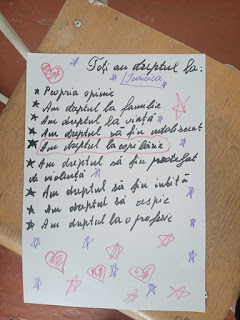 Toți au dreptul la:
★ Propria opinie
★ Am dreptul la familie
★ Am dreptul la viață
★ Am dreptul să fiu adolescent
★ Am dreptul la copilărie
★ Am dreptul să fiu protejat
de violență
★ Am dreptul să fiu iubită
★ Am dreptul să aspir
★ Am dreptul la o profesie